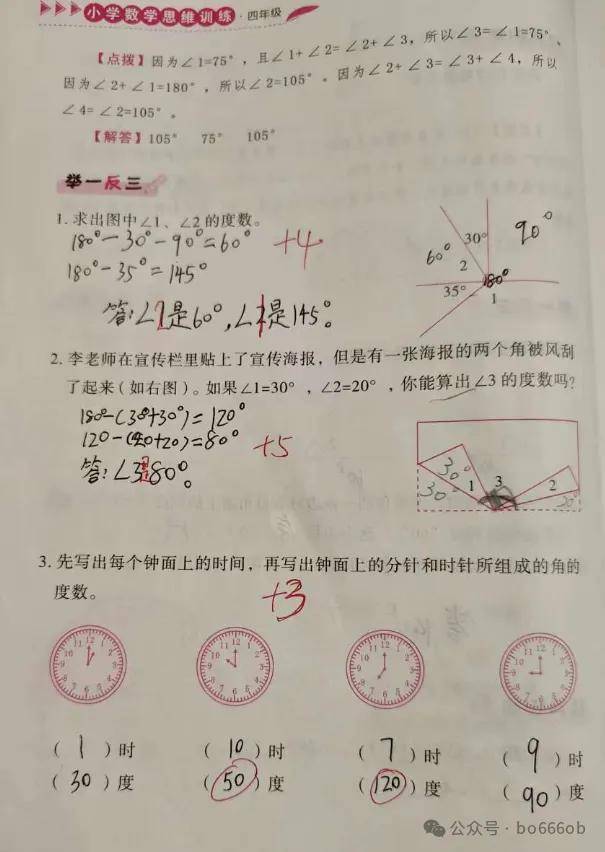 小学数学思维训练·四年级
【点拨】因为∠1=75°，且∠1+∠2=∠2+∠3，所以∠3=∠1=75°、
因为∠2+∠1=180°，所以∠2=105°。因为∠2+∠3=∠3+∠4，所以
∠4=∠2=105°。
【解答】105° 75° 105°
举一反三
1. 求出图中∠1、∠2的度数。
180°-30°-90°=60° +4
180°-35°=145°
答:∠2是60°,∠1是145°。
90°
30°
60°
2
180°
35°
1
2. 李老师在宣传栏里贴上了宣传海报，但是有一张海报的两个角被风刮
了起来（如右图）。如果∠1=30°，∠2=20°，你能算出∠3的度数吗？
180-(30+30°)=120°
120-(20+20)=80° +5
答:∠3是80°。
30° 1 3 2
30° 20°
3. 先写出每个钟面上的时间，再写出钟面上的分针和时针所组成的角的
度数。 +3
11 12 1 2 3 4 5 6 7 8 9 10
11 12 1 2 3 4 5 6 7 8 9 10
11 12 1 2 3 4 5 6 7 8 9 10
11 12 1 2 3 4 5 6 7 8 9 10
（1）时 （10）时 （7）时 （9）时
（30）度 （50）度 （120）度 （90）度
公众号·bo666ob